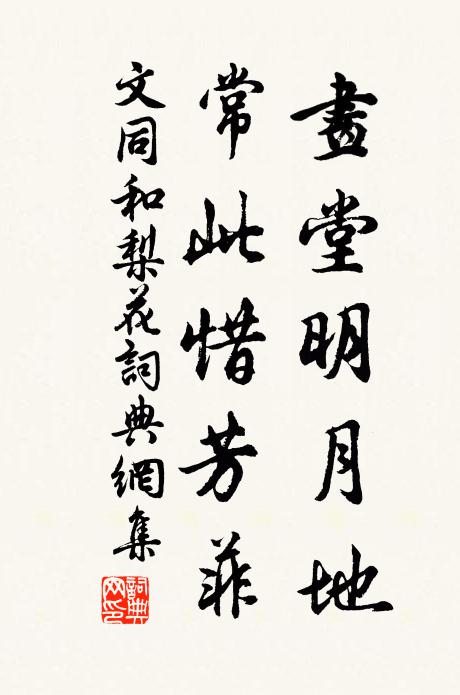 畫堂明月地
常此惜芳菲
文同和梨花詞典網集
詞典网印